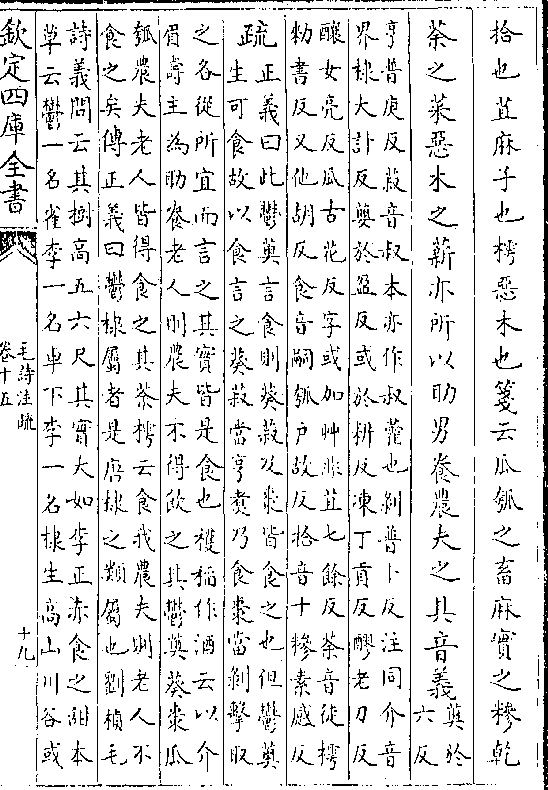 拾也苴麻子也樗惡木也箋云瓜瓠之畜麻實之糝乾
荼之菜惡木之薪亦所以助男養農夫之具音義
薁於
六反
亨普庚反菽音叔本亦作叔藿也剝普卜反注同介音
界棣大計反蘡於盈反或於耕反凍丁貢反醪老刀反
釀女亮反瓜古花反字或加艸非苴七餘反荼音徒樗
勑書反又他胡反食音嗣瓠户故反拾音十糝素感反
疏
正義曰此鬱薁言食則葵菽及棗皆食之也但鬱薁
生可食故以食言之葵菽當亨煮乃食棗當剝擊取
之各從所宜而言之其實皆是食也穫稻作酒云以介
眉壽主為助養老人則農夫不得飲之其鬱薁葵棗瓜
瓠農夫老人皆得食之其荼樗云食我農夫則老人不
食之矣傳正義曰鬱棣屬者是唐棣之類屬也劉楨毛
詩義問云其樹高五六尺其實大如李正赤食之甜本
草云鬱一名雀李一名車下李一名棣生高山川谷或
欽定四庫全書
毛詩注疏
卷十五
十九